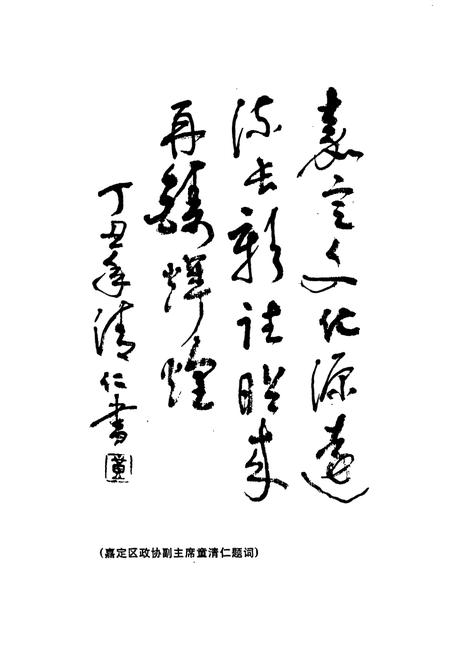 嘉定文化源远
流长新诖昭来
再铸辉煌
丁丑年清仁书
黄
(嘉定区政协副主席童清仁题词)